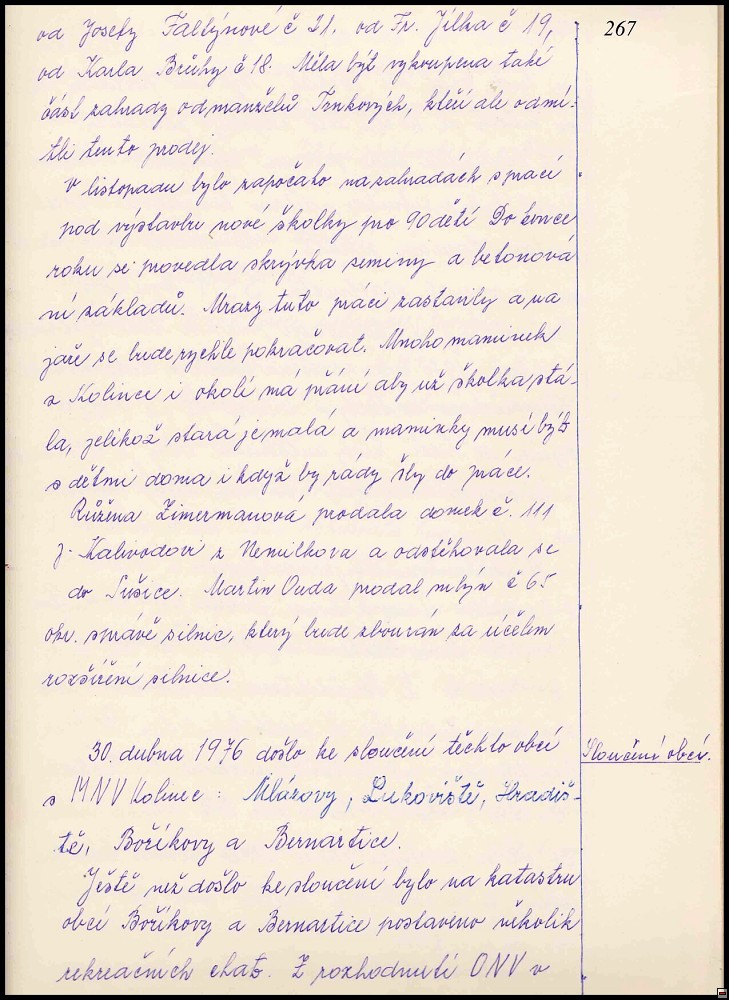 267
od Josefy Faltýnové č 21. od Fr. Jílka č 19,
od Karla Brůhy č 18. Měla být vykoupena také
část zahrady od manželů Trnkových, kteří ale odmí-
tli tento prodej.
V listopadu bylo započato na zahradách s prací
pod výstavbu nové školky pro 90 dětí Do konce
roku se provedla skrývka zeminy a betonová
ní základů. Mrazy tuto práci zastavily a na
jaře se bude rychle pokračovat. Mnoho maminek
z Kolince i okolí má přání aby už školka stá-
la, jelikož stará je malá a maminky musí být
s dětmi doma i když by rády šly do práce.
Růžena Zimermanová prodala domek č. 111
J. Kalivodovi z Nemilkova a odstěhovala se
do Sušice. Martin Ouda prodal mlýn č 65
okr. správě silnic, který bude zbourán za účelem
rozšíření silnice.
30. dubna 1976 došlo ke sloučení těchto obcí
Sloučení obcí.
s MNV Kolinec: Mlázovy, Lukoviště, Hradiš-
tě, Boříkovy a Bernartice.
Ještě než došlo ke sloučení bylo na katastru
obcí Boříkovy a Bernartice postaveno několik
rekreačních chat. Z rozhodnutí ONV v